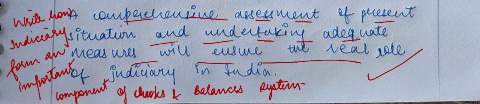 A comprehensive assessment of present
situation and undertaking adequate
measures will ensure the real role
of judiciary in India.
Write how
Judiciary
form an
important
component of checks & balances system